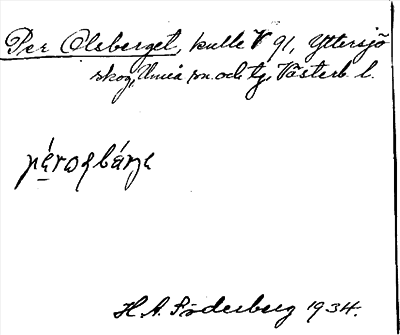 Per Olsberget, kulle V 91, Yttersjö
skog, Umeå sn. och tg, Västerb. l.
H. A. Söderberg 1934.